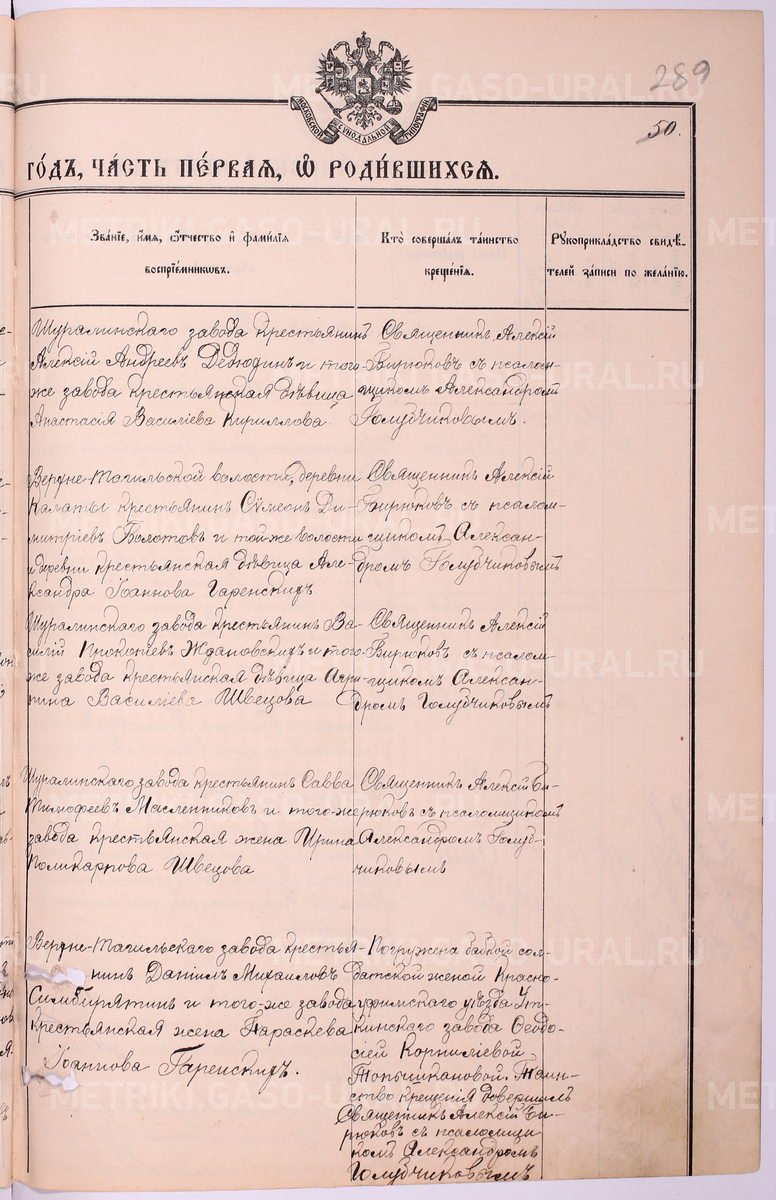 289
50.
МОСКОВСКОЙ СИНОДАЛЬНОЙ ТИПОГРАФІИ
ГО́ДЪ, ЧА́СТЬ ПЕ́РВАЯ, Ѽ РОДИ́ВШИХСЯ.
Зва́ніе, и́мя, ѻ҆́тчество и҆ фами́лія
воспріе́мниковъ.
Кто̀ соверша́лъ та́инство
креще́нія.
Рукоприкла́дство свидѣ́-
телей за́писи по жела́нію.
Шуралинскаго завода крестьянинъ
Алексій Андреевъ Дедюдинъ и того-
же завода крестьянская дѣвица
Анастасія Василіева Кириллова.
Священникъ Алексій
Бирюковъ съ псалом-
щикомъ Александромъ
Голубчиковымъ.
Верхне-Тагильской волости, деревни
Калаты крестьянинъ Сѵмеонъ Ди-
митріевъ Болотовъ и той-же волости
и деревни крестьянская дѣвица Але-
ксандра Іоаннова Гаренскихъ
Священникъ Алексій
Бирюковъ съ псалом-
щикомъ Алексан-
дромъ Голубчиковымъ
Шуралинскаго завода крестьянинъ Ва-
силій Прокопіевъ Ждановскихъ и того-
же завода крестьянская дѣвица Агри-
пина Василіева Швецова
Священникъ Алексій
Бирюковъ съ псалом-
щикомъ Алексан-
дромъ Голубчиковымъ
Шуралинскаго завода крестьянинъ Савва
Тимофеевъ Масленниковъ и того-же
завода крестьянская жена Ирина
Поликарпова Швецова
Священникъ Алексій Би-
рюковъ съ псаломщикомъ
Александромъ Голуб-
чиковымъ
Верхне-Тагильскаго завода крестья-
нинъ Даніилъ Михаиловъ
Симбирятинъ и того-же завода
крестьянская жена Параскева
Іоаннова Гаренскихъ.
Погружена бабкой сол-
датской женой Красно-
уфимскаго уѣзда Ут-
кинскаго завода Ѳеодо-
сіей Корниліевой
Таин-
ство крещенія довершилъ
Священникъ Алексій Би-
рюковъ съ псаломщи-
комъ Александромъ
Голубчиковымъ
METRIKI.GASO-URAL.RU